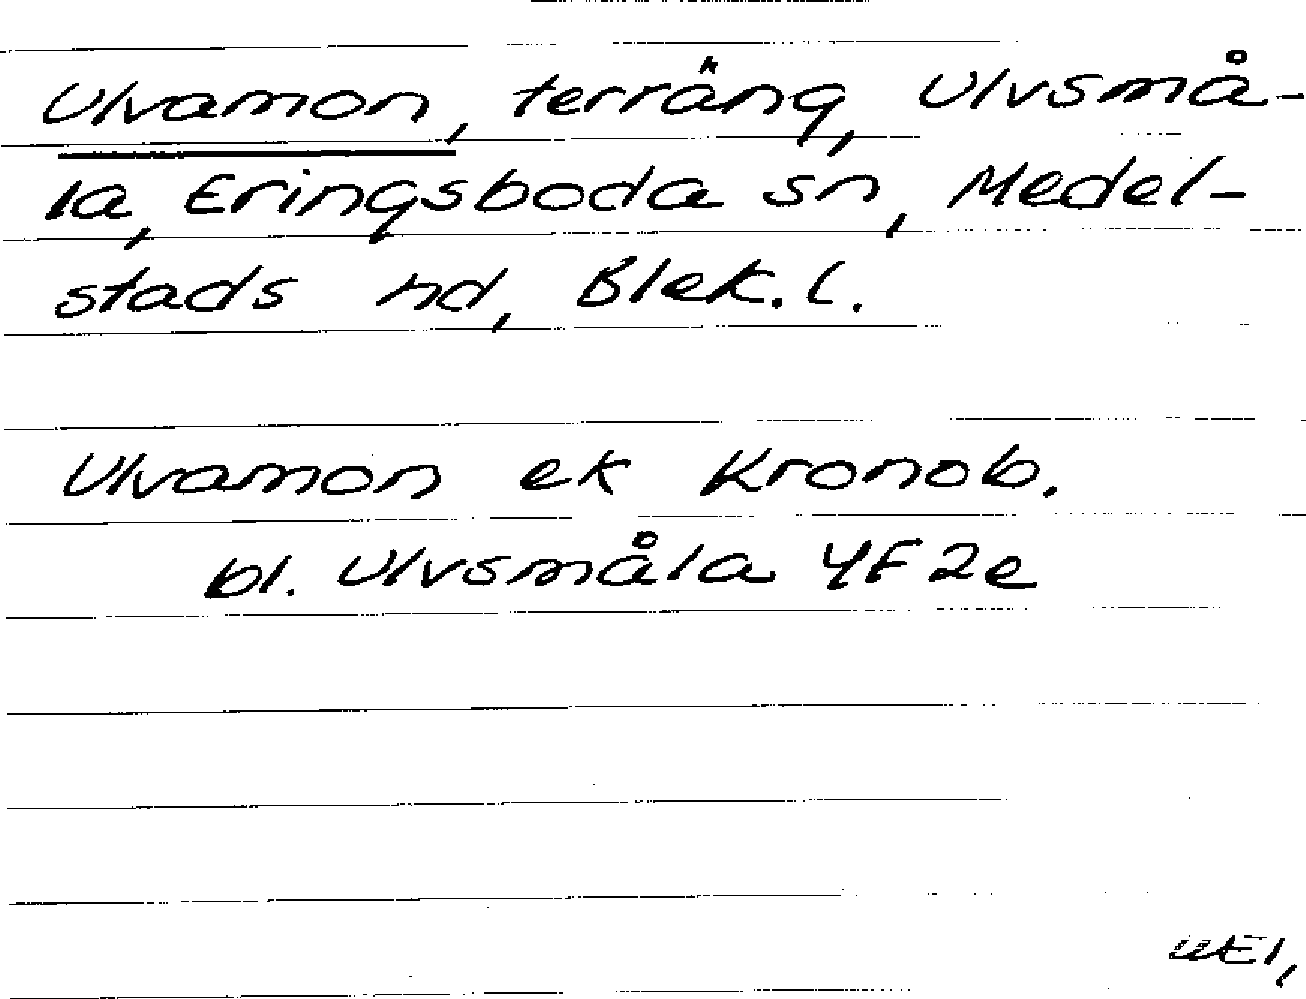 Ulvamon, terräng, Ulvsmå-
la, Eringsboda sn, Medel-
stads hd, Blek. l.
Ulvamon ek Kronob.
bl. Ulvsmåla 4F 2e